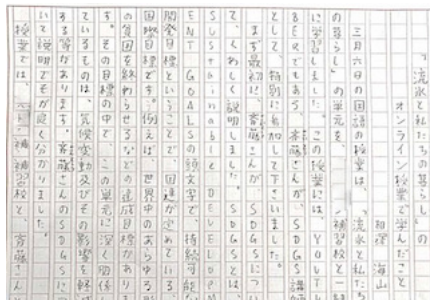 「流氷と私たちの暮らし」の
オンライン授業で学んだこと
海山
三月六日の国語の授業は、「流氷と私たち
の暮らし」の単元を、補習校と一
に学習しました。この授業には、YOUT
BERでもある斉藤さんが、SDGS講師
として、特別に参加して下さいました。
まず最初に、斉藤さんが、SDGSについ
てくわしく説明しました。SDGSとは、
Sustainable DEVELOPM
ENT GOALSの頭文字で、持続可能な
開発目標ということで、国連が定めている、
国際目標です。例えば、世界中のあらゆる形
の貧困を終わらせるなどの達成目標があり
す。その目標の中で、この単元に深く関係
ているものは、気候変動及びその影響を軽減
する等があります。斉藤さんのSDGSに
いて説明でそが良く分かりました。
授業では、補習校と斉藤さんと